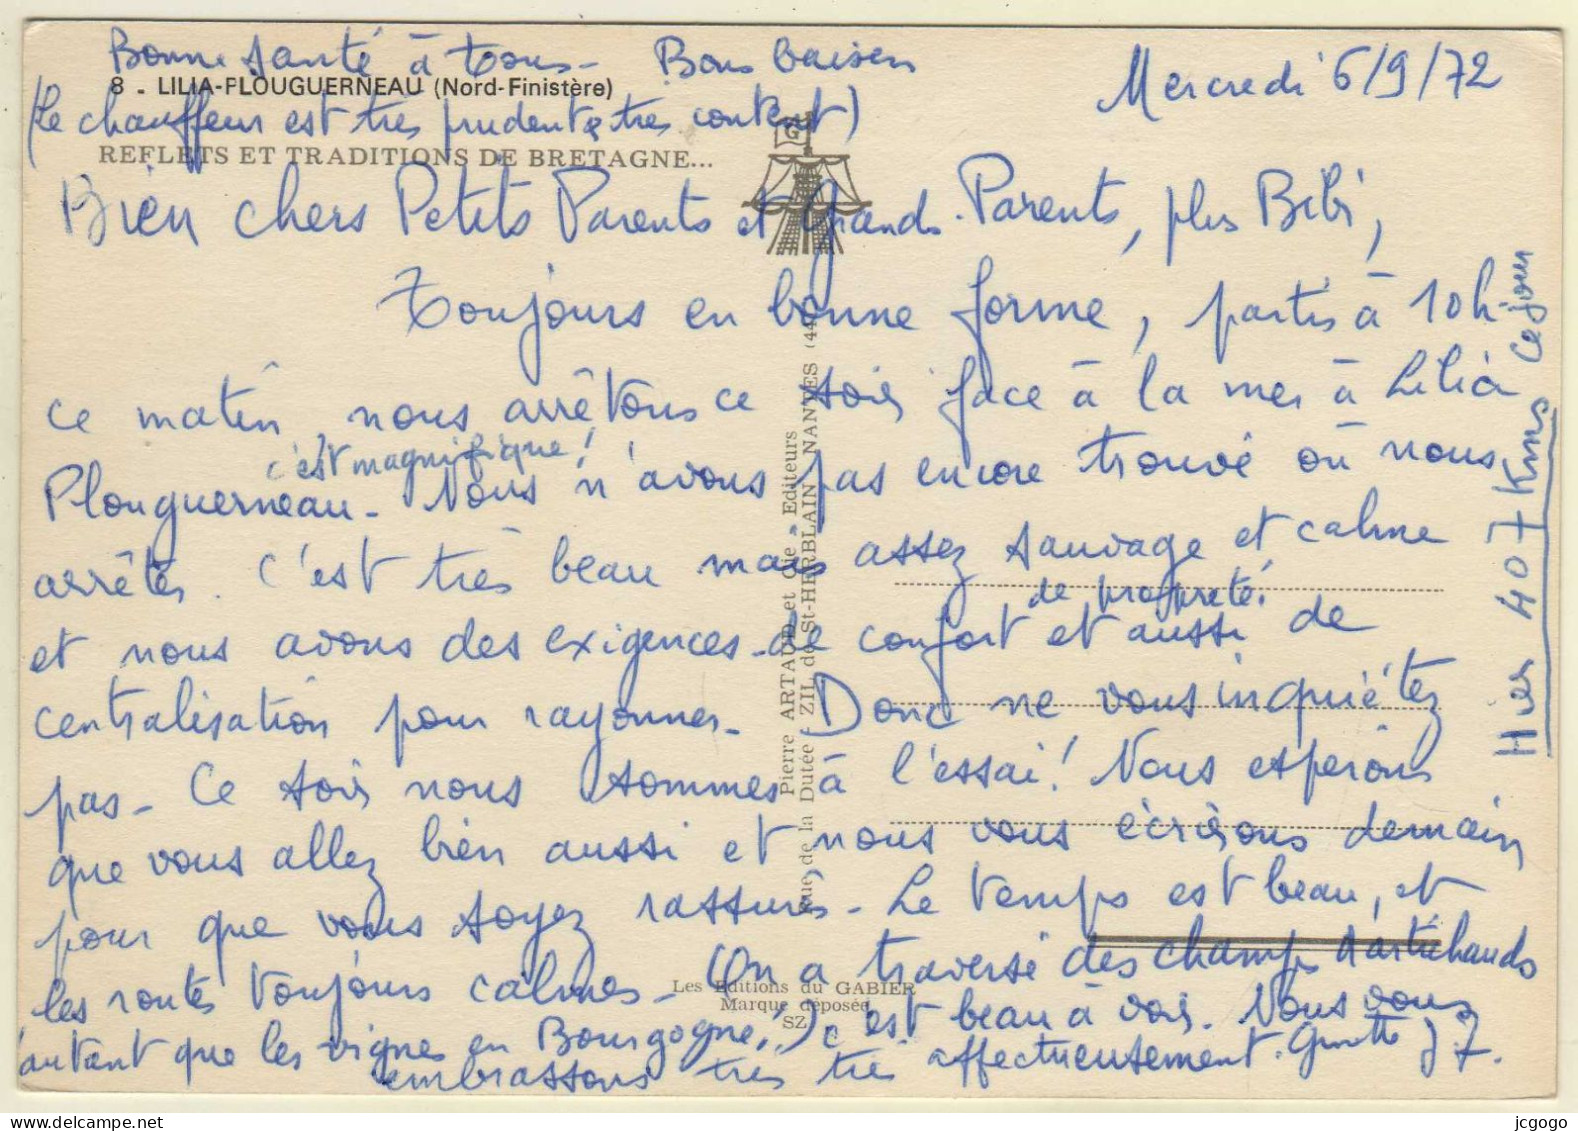 Bonne santé à tous - Bons baisers
Mercredi 6/9/72
8 - LILIA-PLOUGUERNEAU (Nord-Finistère)
(Le chauffeur est très prudent & très content)
REFLETS ET TRADITIONS DE BRETAGNE...
Bien chers Petits Parents et Grands-Parents, plus Bibi,
Toujours en bonne forme, partis à 10h
ce matin, nous arrêtons ce soir face à la mer à Lilia
c'est magnifique!
Plouguerneau - Nous n'avons pas encore trouvé où nous
arrêter. c'est très beau mais assez sauvage et calme
de propreté.
et nous avons des exigences de confort et aussi de
centralisation pour rayonner - Donc ne vous inquiétez
pas - Ce soir nous sommes à l'essai! Nous espérons
que vous allez bien aussi et nous vous écrirons demain
pour que vous soyez rassurés - Le temps est beau, et
les routes toujours calmes - (On a traversé des champs d'artichauds
autant que les vignes en Bourgogne!!) c'est beau à voir. Nous vous
embrassons très très affectueusement.
Hier 407 Kms ce jour
Pierre ARTAUD et Cie - Editeurs
Rue de la Dutée - ZIL de St-HERBLAIN NANTES (44
Les Editions du GABIER
Marque déposée
SZ
jcgogo